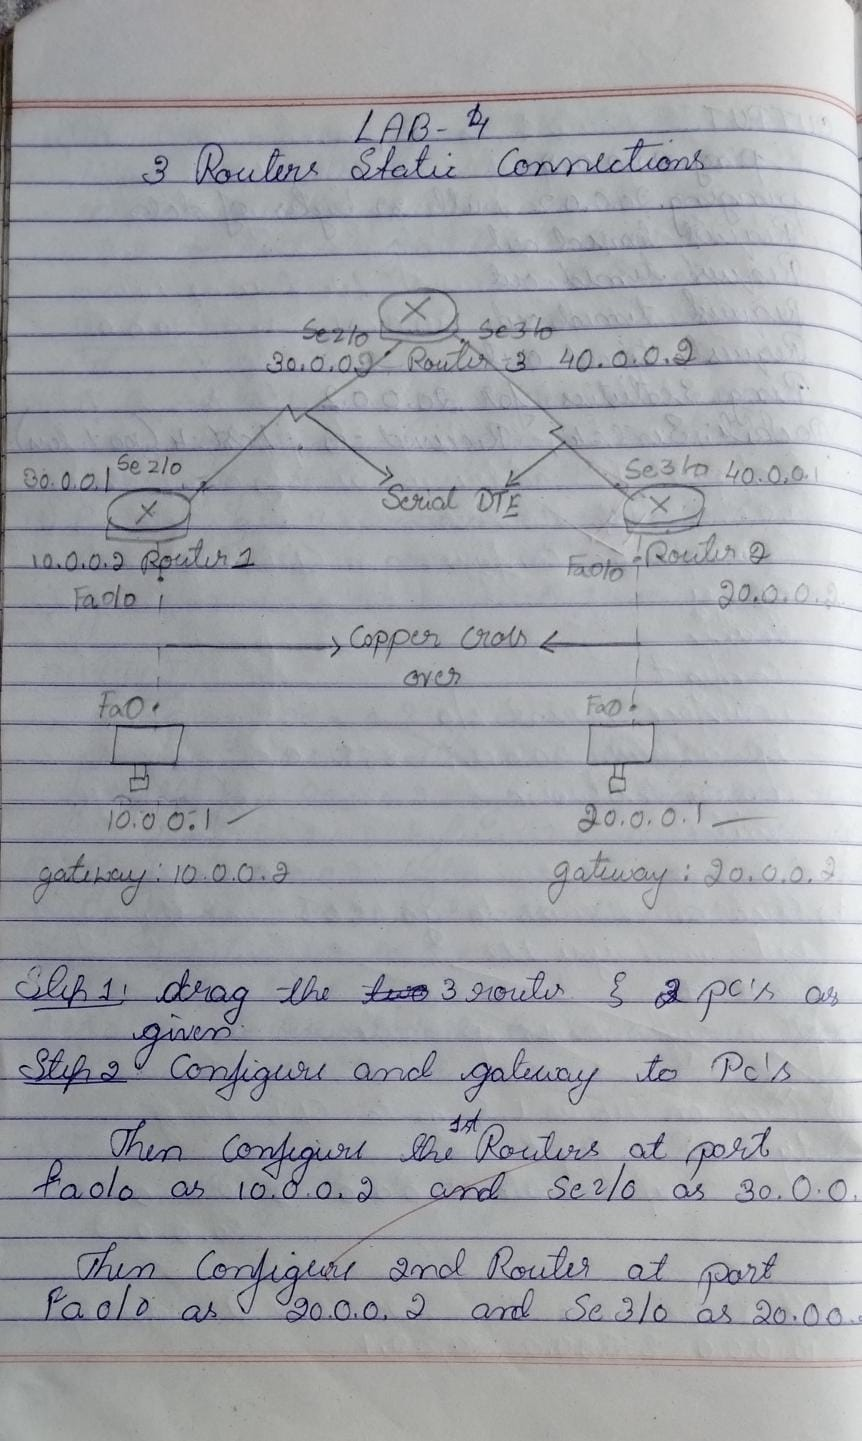 LAB-4
3 Routers Static Connections
Se2/0 Se3/0
30.0.0.2 Router 3 40.0.0.2
30.0.0.1 Se2/0 Se3/0 40.0.0.1
Serial DTE
10.0.0.2 Router 1 Fa0/0 Router 2
Fa0/0 20.0.0.2
Copper Cross
over
Fa0 Fa0
10.0.0.1 20.0.0.1
gateway: 10.0.0.2 gateway: 20.0.0.2
Step 1: drag the two 3 router & 2 pc's as
given.
Step 2 Configure and gateway to Pc's
Then Configure the 1st Routers at port
fa0/0 as 10.0.0.2 and Se2/0 as 30.0.0.
Then Configure 2nd Router at port
fa0/0 as 20.0.0.2 and Se3/0 as 20.0.0.